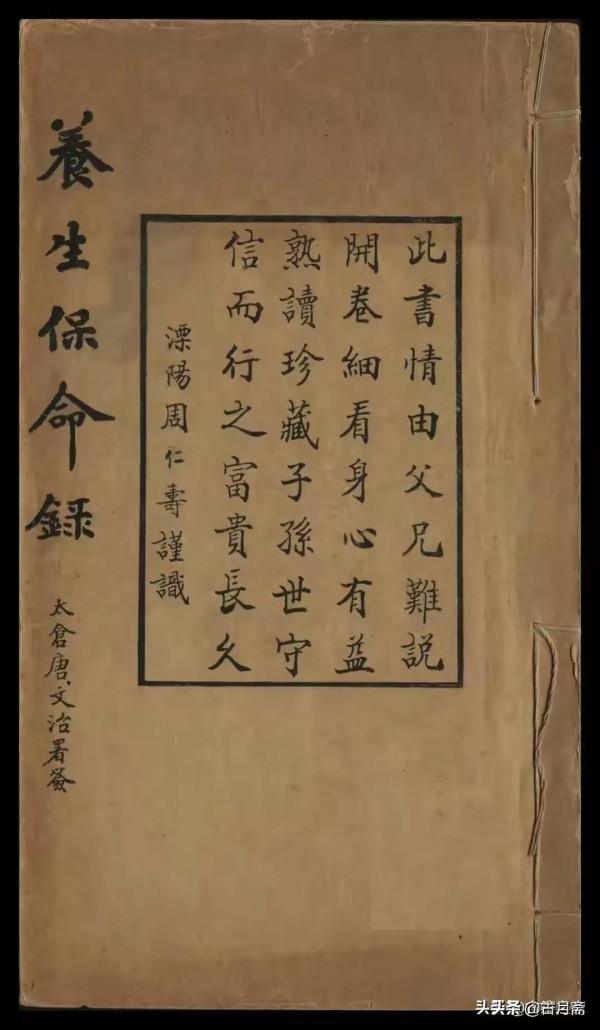 養生保命録
太倉唐文治署簽
此書情由父兄難説
開卷細看身心有益
熟讀珍藏子孫世守
信而行之富貴長久
溧陽周仁壽謹識
头条